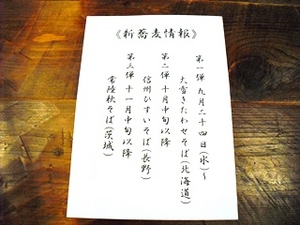 《新蕎麦情報》
第一弾 九月二十四日(水)〜
大雪きたわせそば(北海道)
第二弾 十月中旬以降
信州ひすいそば(長野)
第三弾 十一月中旬以降
常陸秋そば(茨城)